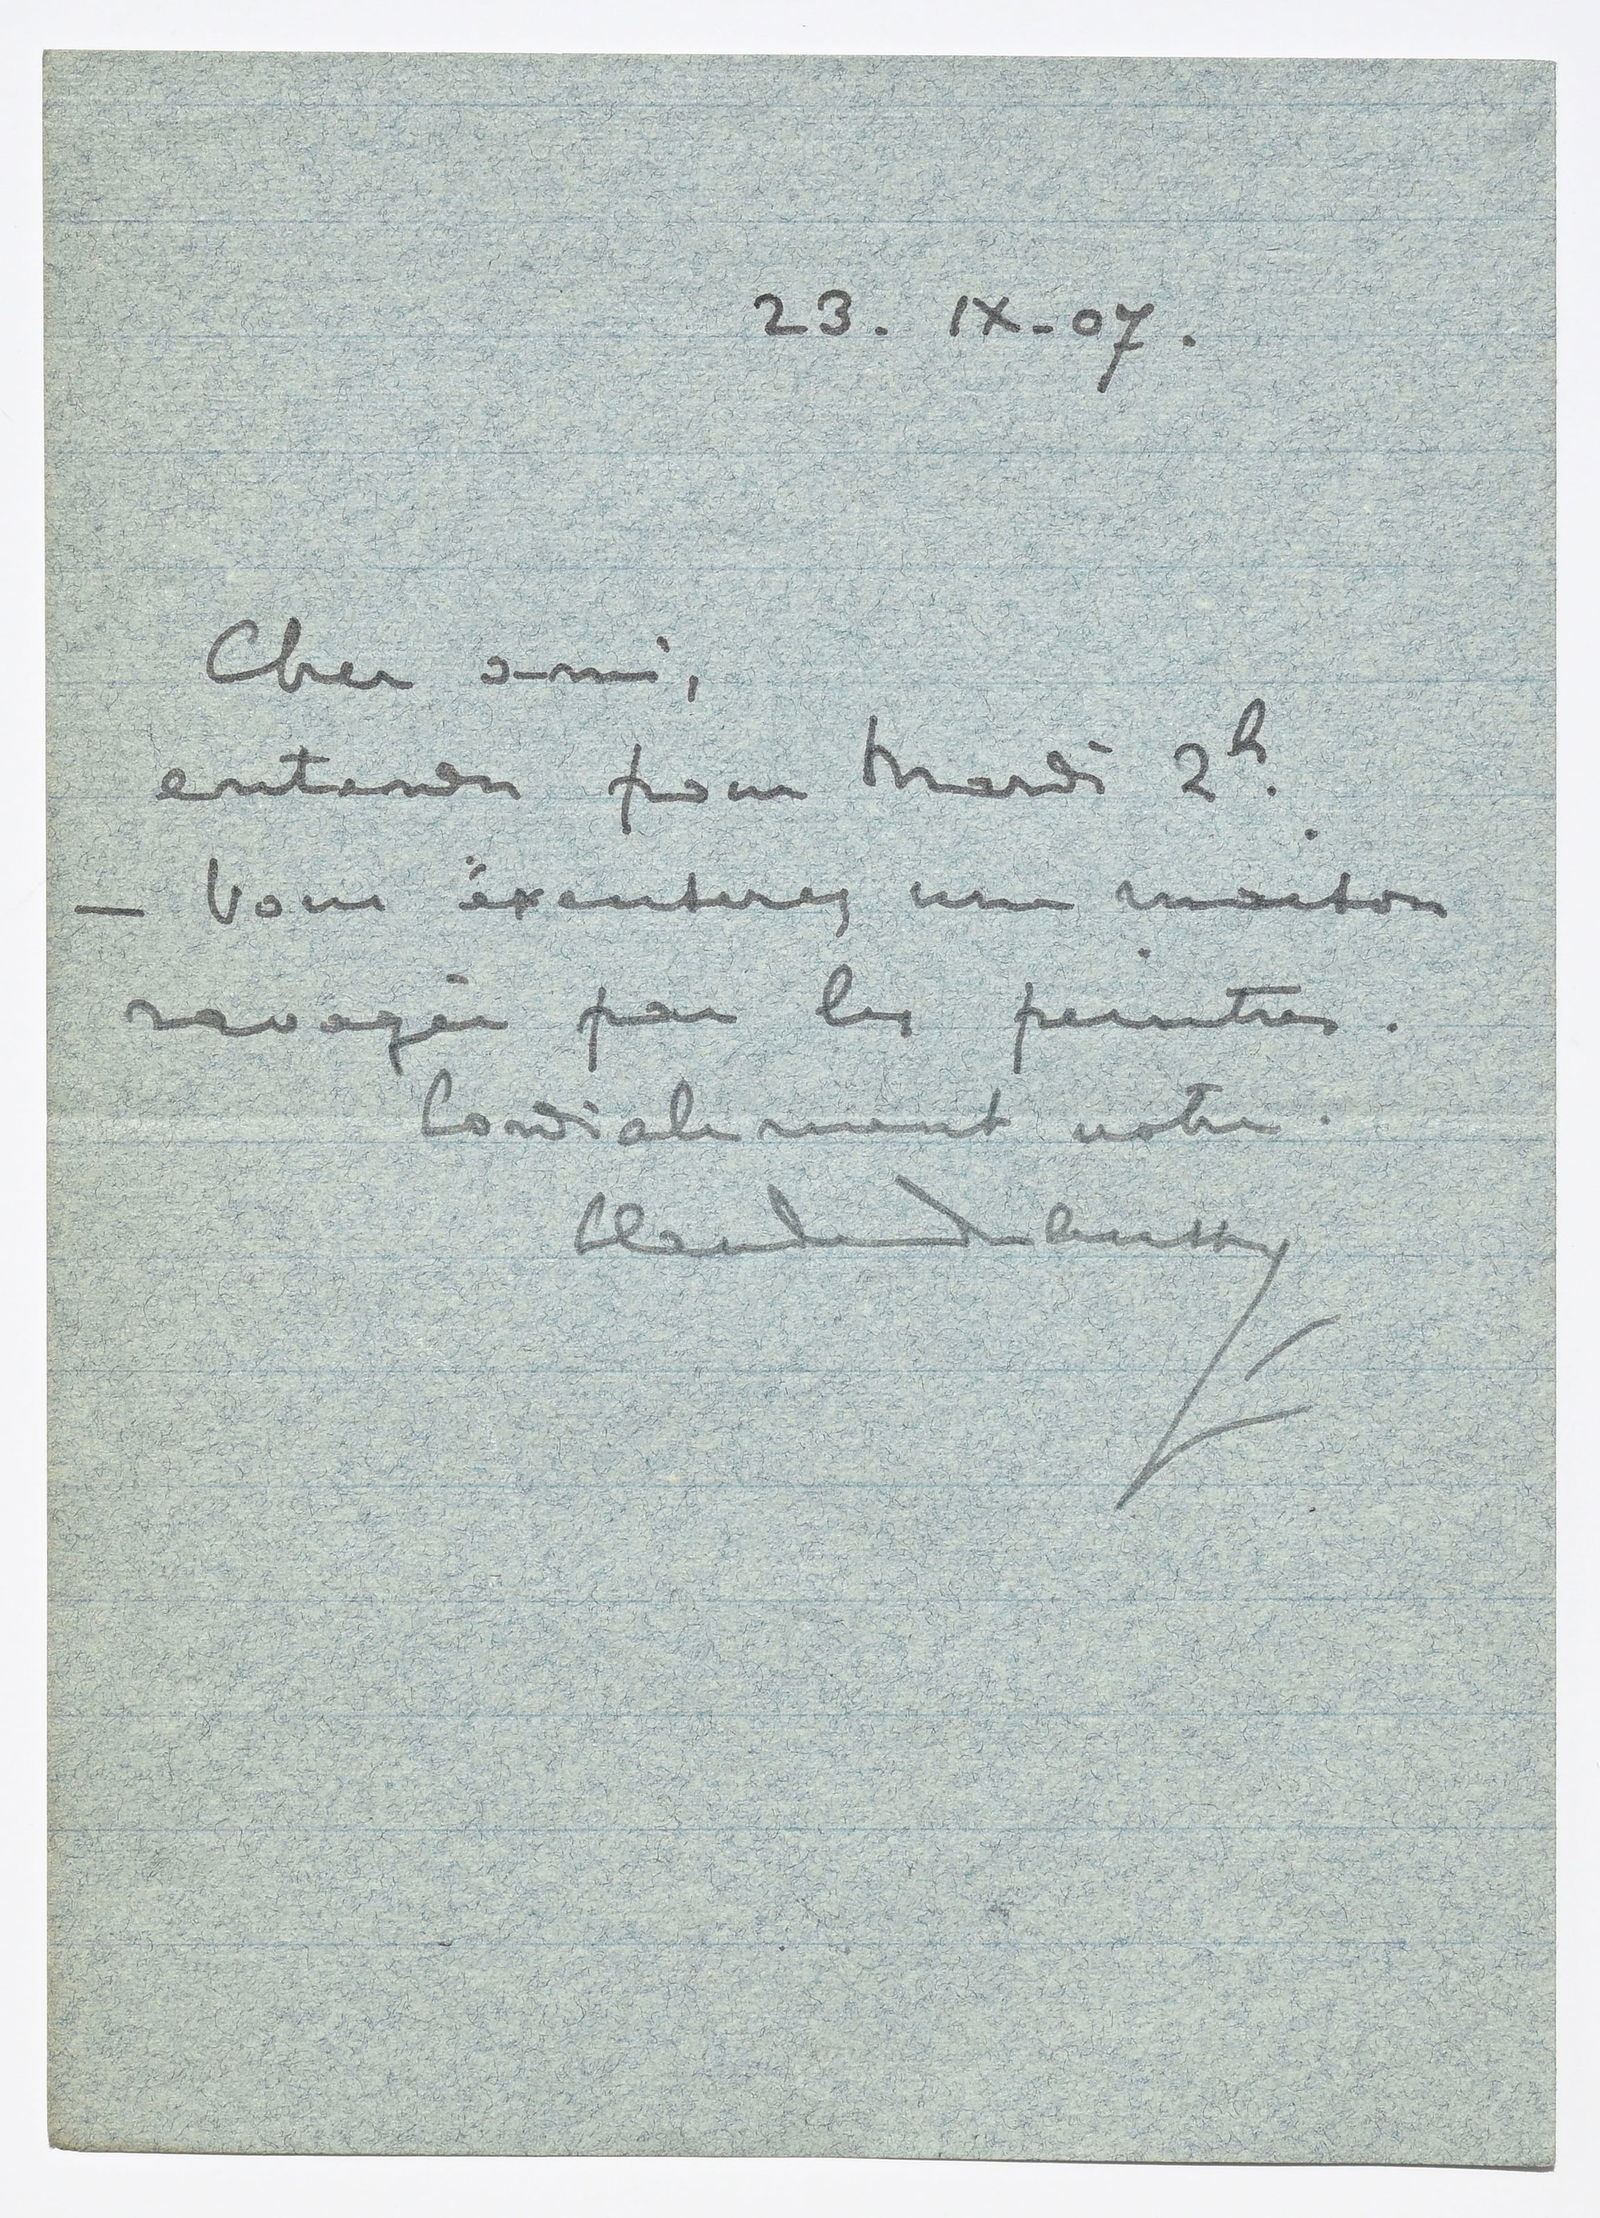 23. IX-07.
Cher ami,
entendu pour Mardi 2h.
— Vous éxcuserez une maison
ravagée par les peintres.
Cordialement votre.
Claude Debussy